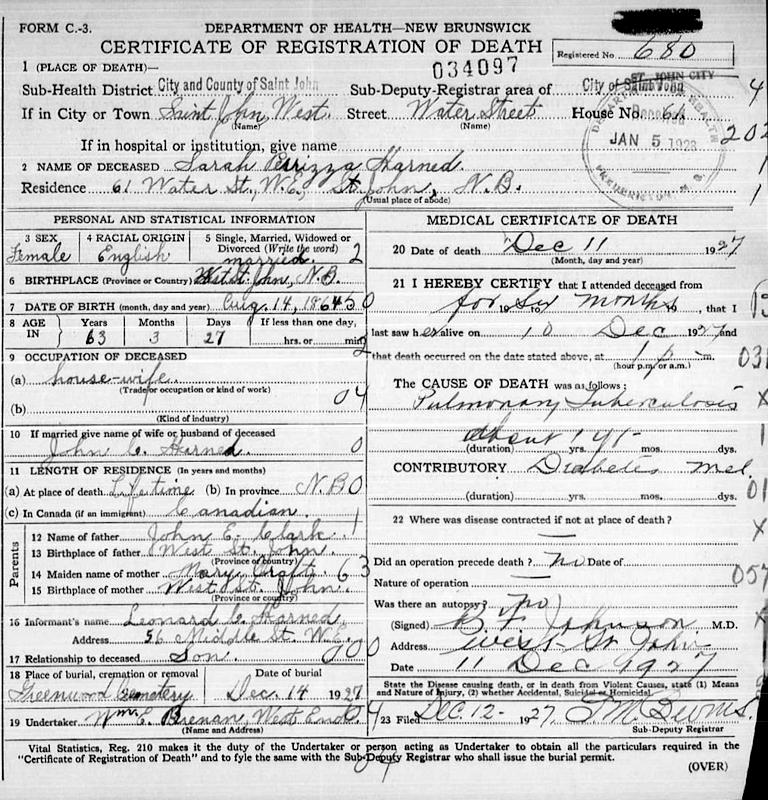 FORM C.-3.
DEPARTMENT OF HEALTH—NEW BRUNSWICK
CERTIFICATE OF REGISTRATION OF DEATH
Registered No 680
034097
1 (PLACE OF DEATH)—
Sub-Health District City and County of Saint John Sub-Deputy-Registrar area of City of Saint John 4
If in City or Town Saint John West. Street Water Street House No. 61
(Name) (Name)
ST. JOHN CITY
DEPARTMENT OF HEALTH
JAN 5 1928
FREDERICTON, N. B.
202
If in hospital or institution, give name
2 NAME OF DECEASED Sarah Harned 1
Residence 61 Water St., W.E., St. John, N.B. 1
(Usual place of abode)
PERSONAL AND STATISTICAL INFORMATION
3 SEX
Female
4 RACIAL ORIGIN
English
5 Single, Married, Widowed or Divorced (Write the word)
married. 2
6 BIRTHPLACE (Province or Country) West St. John, N.B.
7 DATE OF BIRTH (month, day and year) Aug. 14, 1864 50
8 AGE IN
Years Months Days If less than one day,
63 3 27 hrs. or min.
9 OCCUPATION OF DECEASED
(a) house-wife.
(Trade or occupation or kind of work)
(b) 04
(Kind of industry)
10 If married give name of wife or husband of deceased
John C. Harned. 0
11 LENGTH OF RESIDENCE (In years and months)
(a) At place of death Lifetime (b) In province N.B 0
(c) In Canada (if an immigrant) Canadian. 1
Parents
12 Name of father John E. Clark.
13 Birthplace of father West St. John.
(Province or country)
14 Maiden name of mother Mary Craft. 63
15 Birthplace of mother West St. John.
(Province or country)
16 Informant's name Leonard C. Harned,
Address 56 Middle St. W.E.
17 Relationship to deceased Son. 000
18 Place of burial, cremation or removal Date of burial
Greenwood Cemetery Dec. 14 1927
19 Undertaker Wm. E. Brenan, West End.
(Name and Address)
MEDICAL CERTIFICATE OF DEATH
20 Date of death Dec 11 1927
(Month, day and year)
21 I HEREBY CERTIFY that I attended deceased from
for six months 19 to 19 , that I
last saw her alive on 10 Dec 1927 and
that death occurred on the date stated above, at 1 p m.
(hour p.m. or a.m.)
031
The CAUSE OF DEATH was as follows:
Pulmonary Tuberculosis X
about 1 yr-
(duration) yrs. mos. dys. 1
CONTRIBUTORY Diabetes Mel.
(duration) yrs. mos. dys. 01
22 Where was disease contracted if not at place of death?
— X
Did an operation precede death? no Date of
Nature of operation — 057
Was there an autopsy? no
(Signed) B F Johnson M.D.
Address West St John
Date 11 Dec 1927
State the Disease causing death, or in death from Violent Causes, state (1) Means
and Nature of Injury, (2) whether Accidental, Suicidal or Homicidal.
23 Filed Dec. 12- 1927.
Sub-Deputy Registrar
Vital Statistics, Reg. 210 makes it the duty of the Undertaker or person acting as Undertaker to obtain all the particulars required in the
"Certificate of Registration of Death" and to fyle the same with the Sub-Deputy Registrar who shall issue the burial permit.
(OVER)